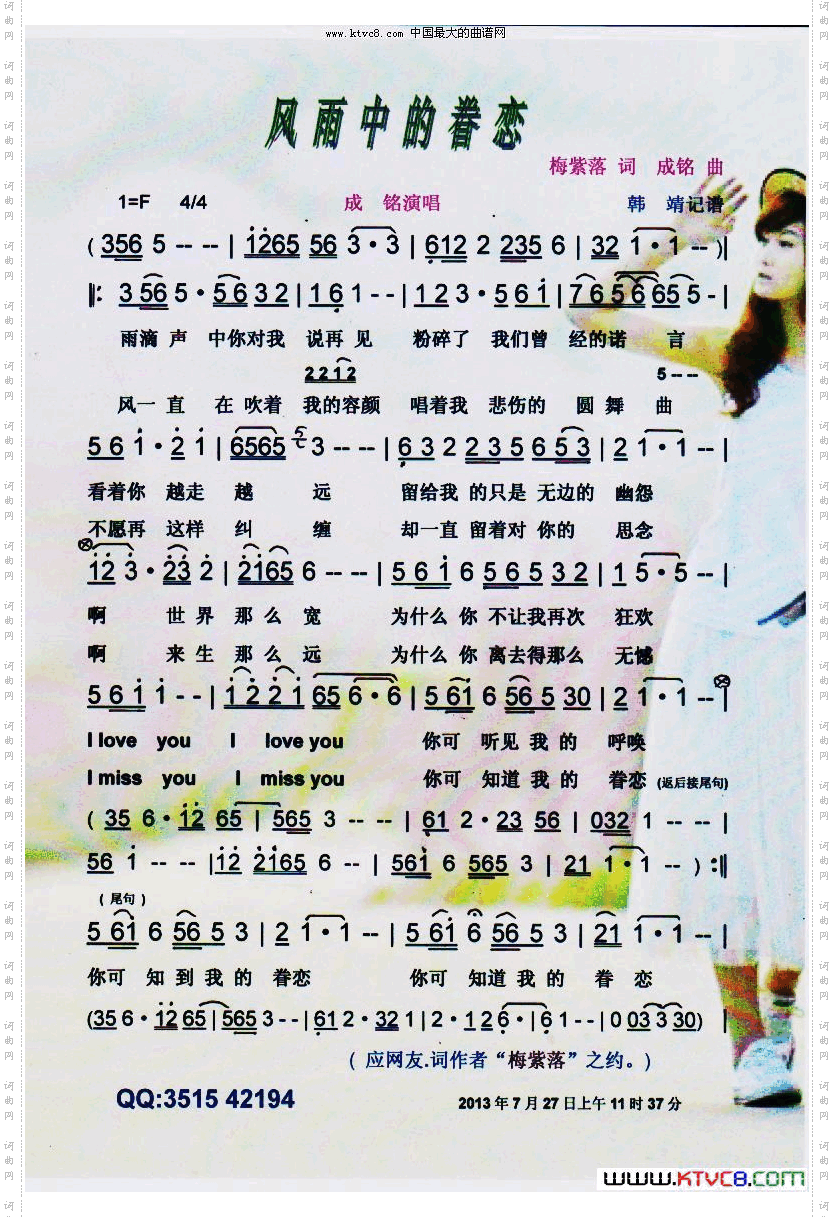 www.ktvc8.com 中国最大的曲谱网
风雨中的眷恋
梅紫落 词 成铭 曲
1=F 4/4 成 铭演唱 韩 靖记谱
( 356 5 -- -- | 1265 56 3·3 | 612 2 235 6 | 32 1·1 -- )|
‖: 3 56 5·56 3 2 | 1 6 1 - - | 1 2 3·5 6 1 | 7 6 5 6 65 5 - |
雨滴 声 中你对我 说再 见 粉碎了 我们曾 经的诺 言
2 2 1 2 5 -- --
风一 直 在 吹着 我的容颜 唱着我 悲伤的 圆 舞 曲
5 6 1·2 1 | 6565 5 3 -- -- | 6 3 2 2 3 5 6 5 3 | 2 1·1 -- |
看着你 越走 越 远 留给我 的只是 无边的 幽怨
不愿再 这样 纠 缠 却一直 留着对 你的 思念
12 3·23 2 | 2165 6 -- -- | 5 6 1 6 5 6 5 3 2 | 1 5·5 -- |
啊 世 界 那 么 宽 为什么 你 不让我再次 狂欢
啊 来 生 那 么 远 为什么 你 离去得那么 无憾
5 6 1 1 - - | 1 2 2 1 65 6·6 | 5 61 6 56 5 30 | 2 1·1 -- |
I love you I love you 你可 听见 我 的 呼唤
I miss you I miss you 你可 知道 我 的 眷恋 (返后接尾句)
( 35 6·12 65 | 565 3 -- -- | 61 2·23 56 | 032 1 -- -- |
56 1 -- -- |12 2165 6 -- | 561 6 565 3 | 21 1·1 -- ) :‖
( 尾句 )
5 61 6 56 5 3 | 2 1·1 -- | 5 61 6 56 5 3 | 21 1·1 -- |
你可 知 到 我 的 眷恋 你可 知道 我 的 眷 恋
(35 6·12 65 | 565 3 - - | 612·32 1 | 2·1 2 6·| 6 1 - - | 0 03 3 30) |
( 应网友.词作者“梅紫落”之约。)
QQ:3515 42194 2013 年 7 月 27 日上午 11 时 37 分
www.KTVC8.com
词曲网